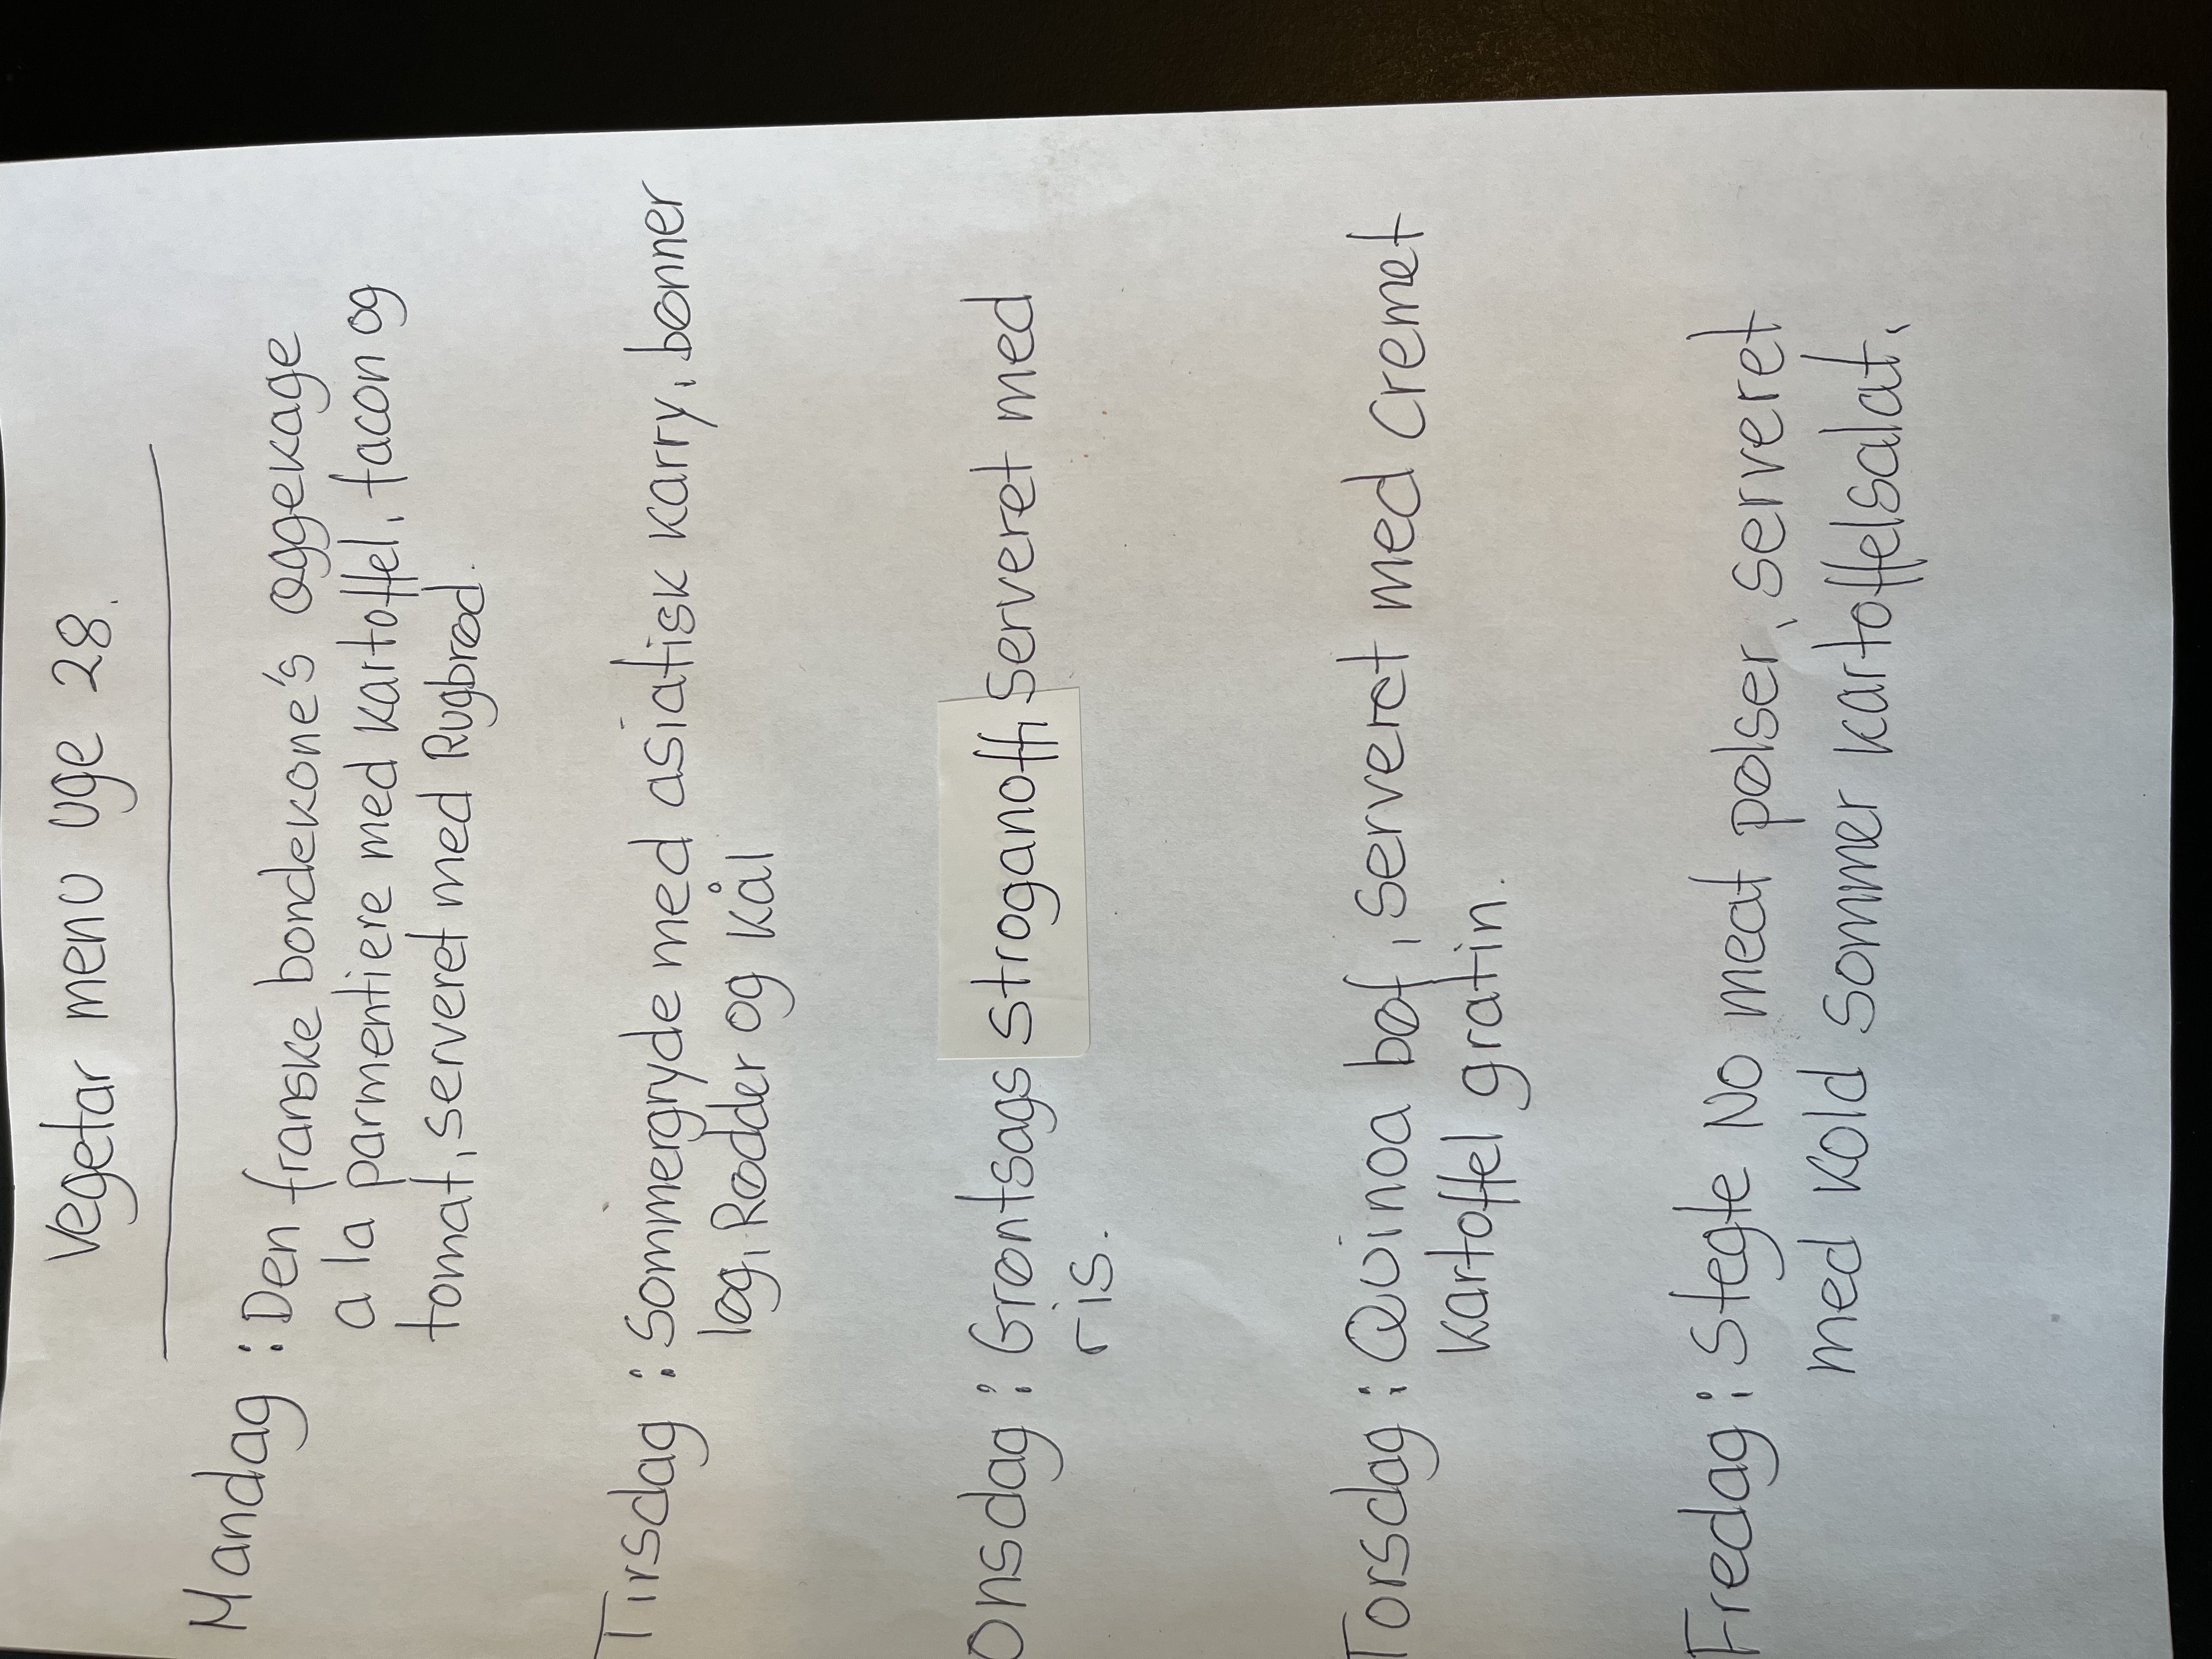 Vegetar menu uge 28.
Mandag : Den franske bondekone's æggekage
a la parmentiere med kartoffel, facon og
tomat, serveret med Rugbrød.
Tirsdag : Sommergryde med asiatisk karry, bønner
løg, Rødder og kål
Onsdag : Grøntsags stroganoff, Serveret med
ris.
Torsdag : Quinoa bøf, serveret med cremet
kartoffel gratin.
Fredag : Stegte No meat pølser, serveret
med kold sommer kartoffelsalat.